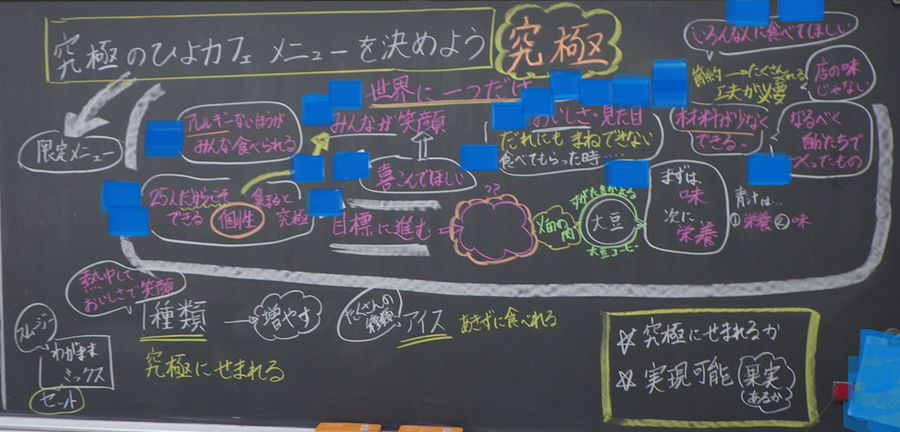 究極のひよカフェメニューを決めよう
究極
いろんな人に食べてほしい
店の味
じゃない
工夫が必要
世界に一つだけ
限定メニュー
アレルギーないほうが
みんな食べられる
みんなが笑顔
おいしさ・見た目
だれにもまねできない
食べてもらった時……
材料が少なく
できる。
なるべく
自分たちで
つくったもの
喜こんでほしい
25人だからこそ
できる
個性
集まると
究極
目標に進む=
??
畑の肉
すがたをかえる
大豆
大豆コーヒー
まずは
味
次に
栄養
青汁は…
①栄養②味
熱中して
おいしさで笑顔
種類
増やす
たくさんの
種類
アイス
あきずに食べれる
究極にせまれる
スムージー
わがまま
ミックス
セット
☆究極にせまれるか
☆実現可能
果実
あるか